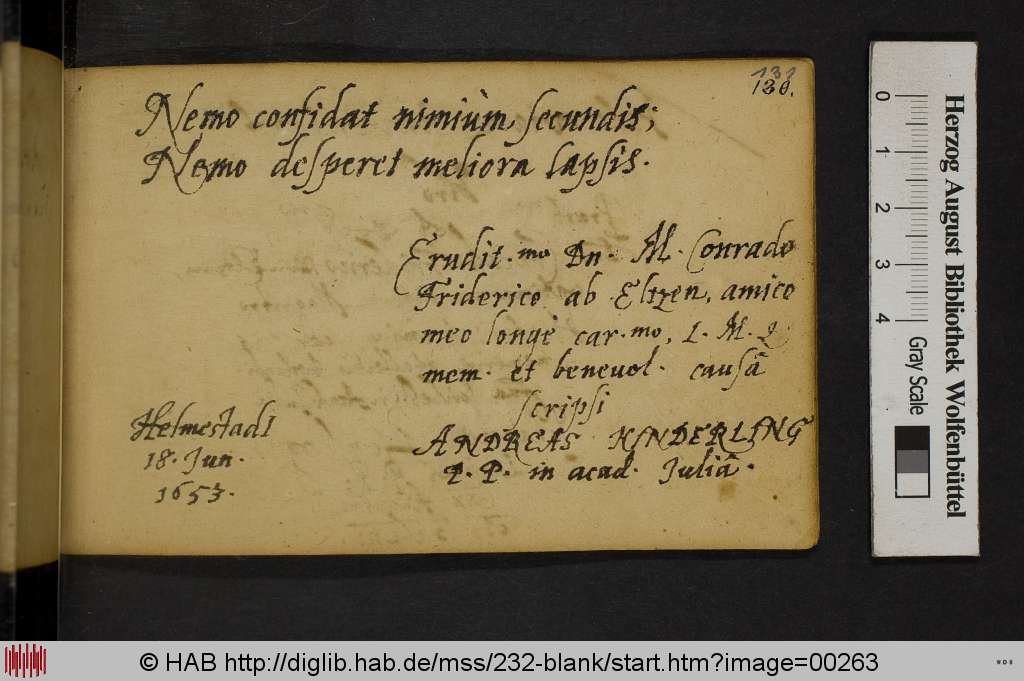 131
130.
Nemo confidat nimiùm secundis;
Nemo desperet meliora lapsis.
Erudit.mo Dn. M. Conrado
Friderico ab Eltzen, amico
meo longè car.mo, L. M. Q
mem. et benevol. causâ
scripsi
ANDREAS KINDERLING
P. P. in acad. Juliâ.
HelmestadI
18. Jun.
1653.
Herzog August Bibliothek Wolfenbüttel
0 1 2 3 4 Gray Scale
© HAB http://diglib.hab.de/mss/232-blank/start.htm?image=00263
WDB